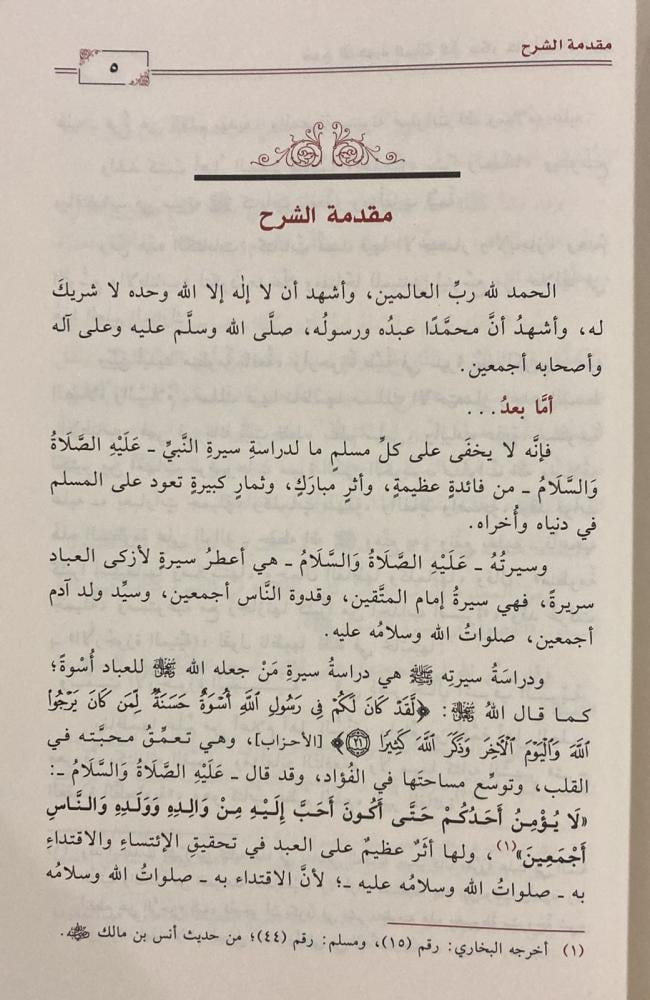 مقدمة الشرح
٥
مقدمة الشرح
الحمد لله ربِّ العالمين، وأشهد أن لا إلٰه إلا الله وحده لا شريكَ
له، وأشهدُ أنَّ محمَّدًا عبدُه ورسولُه، صلَّى الله وسلَّم عليه وعلى آله
وأصحابه أجمعين.
أمَّا بعدُ...
فإنَّه لا يخفَى على كلِّ مسلمٍ ما لدراسةِ سيرةِ النَّبيِّ ـ عَلَيْهِ الصَّلَاةُ
وَالسَّلَامُ ـ من فائدةٍ عظيمةٍ، وأثرٍ مبارَكٍ، وثمارٍ كبيرةٍ تعود على المسلم
في دنياه وأُخراه.
وسيرتُهُ ـ عَلَيْهِ الصَّلَاةُ وَالسَّلَامُ ـ هي أعطرُ سيرةٍ لأزكى العباد
سريرةً، فهي سيرةُ إمام المتَّقين، وقدوة النَّاس أجمعين، وسيِّد ولد آدم
أجمعين، صلواتُ الله وسلامُه عليه.
ودراسَةُ سيرتِه ﷺ هي دراسةُ سيرةِ مَنْ جعله الله ﷻ للعباد أُسْوةً؛
كما قال اللهُ ﷻ: ﴿لَّقَدْ كَانَ لَكُمْ فِى رَسُولِ ٱللَّهِ أُسْوَةٌ حَسَنَةٌ لِّمَن كَانَ يَرْجُوا۟
ٱللَّهَ وَٱلْيَوْمَ ٱلْآخِرَ وَذَكَرَ ٱللَّهَ كَثِيرًا ۝٢١﴾ [الأحزاب]، وهي تعمِّقُ محبَّته في
القلب، وتوسِّع مساحتَها في الفُؤاد، وقد قال ـ عَلَيْهِ الصَّلَاةُ وَالسَّلَامُ ـ:
«لَا يُؤْمِنُ أَحَدُكُمْ حَتَّى أَكُونَ أَحَبَّ إِلَيْهِ مِنْ وَالِدِهِ وَوَلَدِهِ وَالنَّاسِ
أَجْمَعِينَ»(١)، ولها أثَرٌ عظيمٌ على العبد في تحقيقِ الإئتساءِ والاقتداءِ
به ـ صلواتُ الله وسلامُه عليه ـ؛ لأنَّ الاقتداء به ـ صلواتُ الله وسلامُه
(١) أخرجه البخاري: رقم (١٥)، ومسلم: رقم (٤٤)؛ من حديث أنس بن مالك رضي الله عنه.